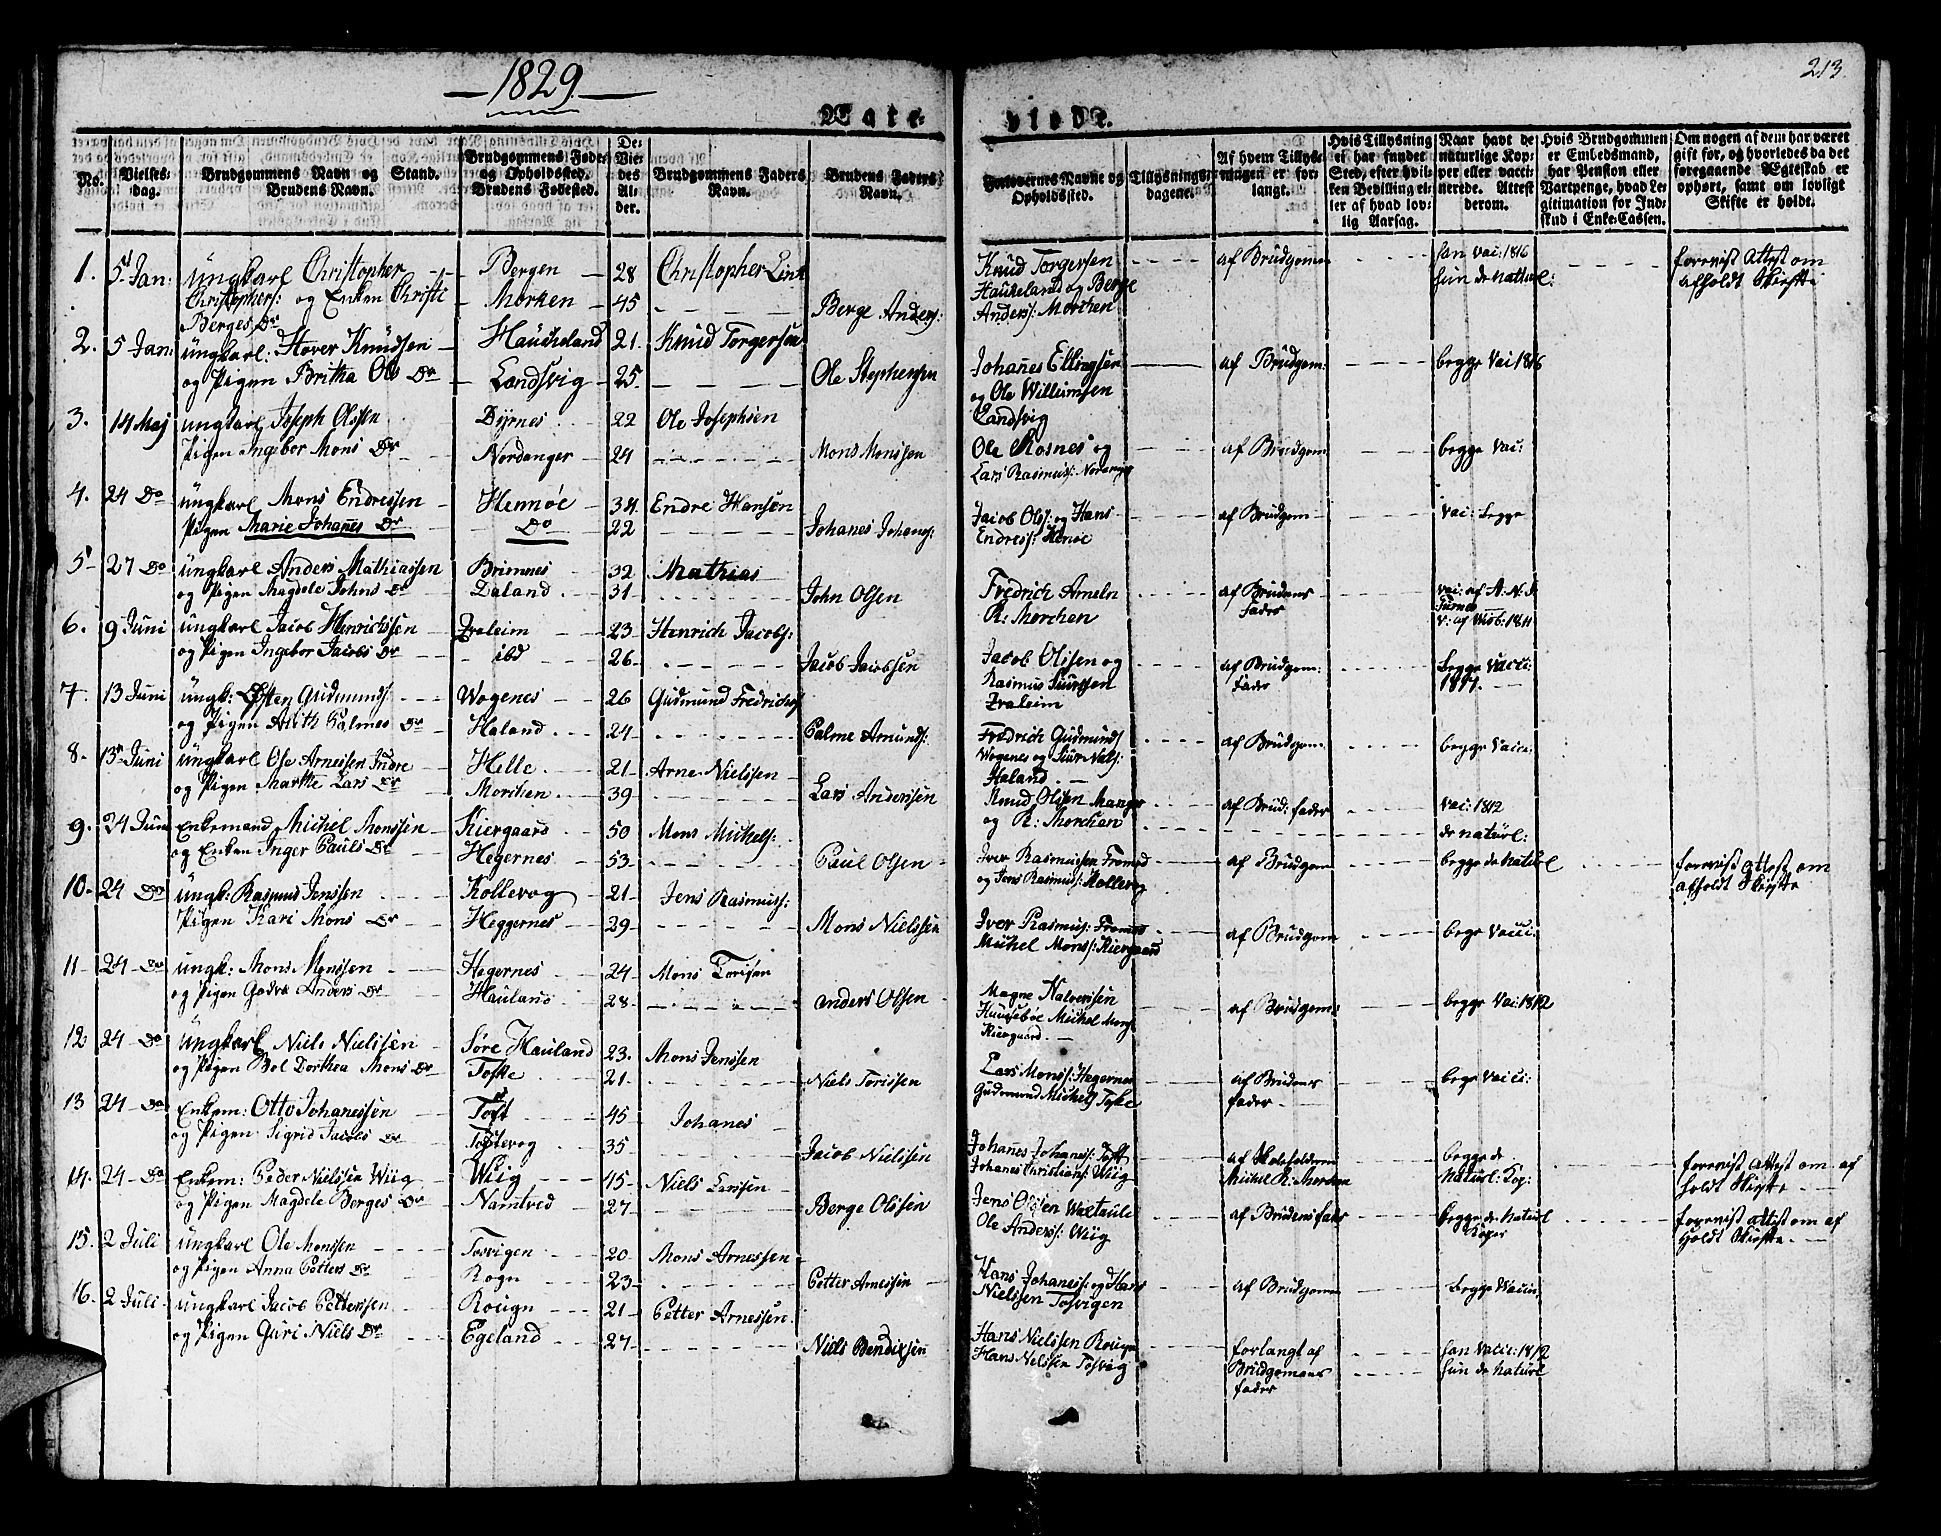 1829.
213.
Egte- viede.
No.
Vielses-dag.
Brudgommens Navn og Stand.
Brudens Navn.
Brudgommens Føde- og Opholdssted.
Brudens Fødested.
De Viedes Alder.
Brudgommens Faders Navn.
Brudens Faders Navn.
Forlovernes Navne og Opholdssted.
Tillysnings-dagene.
Af hvem Tillysningen er forlangt.
Hvis Tillysning ei har fundet Sted, efter hvilken Bevilling eller af hvad lovlig Aarsag.
Naar havt de naturlige Kopper eller vaccinerede. Attest derom.
Hvis Brudgommen er Embedsmand, har Pension eller Vartpenge, hvad Legitimation for Indskud i Enke-Cassen.
Om nogen af dem har været gift før, og hvorledes da det foregaaende Ægteskab er ophørt, samt om lovligt Skifte er holdt.
1. 5t Jan: Ungkarl Christopher Bergen 28 Christopher Knud Torgersen af Brudgomm han Vac: 1816 forevist Attest om
Christophers: og Enken Christi Morken 45 Berge Anders: Haukeland og Berge hun de naturl: afholdt Skifte
Berges Dr Anders: Morchen
2. 5 Jan: Ungkarl: Haver Knudsen Hauckeland 21. Knud Torgersen Johanes Ellingsen af Brudgom: begge Vac 1816
og Pigen Britha Ols Dr Landsvig 25. Ole Stephensen og Ole Willumsen
Landsvig
3. 14 Maj ungkarl Joseph Olsen Dyrnes 22 Ole Josephsen Ole Rosnes og af Brudgom: begge Vac:
Pigen Ingebor Mons Dr Nordanger 24 Mons Monssen Lars Rasmuss:
4. 24 Do ungkarl Mons Endressen Hennøe 34. Endre Hansen Jacob Ols: og Hans af Brudgom Vac: begge
Pigen Marie Johanes Dr Do 22 Johanes Johans: Endress: Henøe
5 27 Do ungkarl Anders Mathiassen Brimnes 32 Mathias Fredrich Ameln af Brudens vac: af
og Pigen Magdele Johns Dr 31 John Olsen R: Morchen Fader
6. 9 Juni ungkarl Jacob Henrichsen 23 Henrich Jacobs: Jacob Olsen og af Brudgom: begge Vacci:
og Pigen Ingebor Jacobs Dr ibd 26 Jacob Jacobsen Rasmus Fader
7. 13 Juni ungk: Østen Gudmunds Wogenes 26 Gudmund Fredrichs Fredrich Gudmunds af Brudgom: begge Vacc:
og Pigen Anith Palmes Dr Haland 24 Palme Amunds: Wogenes og Siur Nels:
Haland
8. 13 Juni ungkarl Ole Arnessen Indre Helle 21 Arne Nielssen Knud Olsen Manger af Brud: fader Vac: 1812
og Pigen Marthe Lars Dr Morchen 39 Lars Anderssen og R: Morchen de naturl:
9. 24 Juni Enkemand Michel Monssen Kiergaard 50 Mons Michels: Iver Rasmussen Fromred af Brudgom begge de Naturl forevist Attest om
og Enken Inger Pauls Dr Hegernes 53 Paul Olsen og Jens Rasmuss: Kollevog afholdt Skifte
10. 24 Do ungk: Rasmus Jenssen Kollevog 21 Jens Rasmuss: Iver Rasmuss: af Brudgom begge Vacci:
Pigen Kari Mons Dr Heggernes 29 Mons Nielssen Michel Mons: Kiergaard
11 24 Do ungk: Mons Monssen Hegernes 24 Mons Torisen Magne Halversen af Brudgom: begge Vac: 1812
og Pigen Anders Dr Hauland 28 Anders Olsen Michel Mons
Kiergaard
12 24 Do Ungkarl Niels Nielssen Søre Hauland 23. Mons Jenssen Lars Mons: Hegernes af Brudens bege Vacci:
og Pigen Bol Dorthea Mons Dr Toske 21 Niels Torissen Gudmund Michels Toske fader
13 24 Do Enkem: Otto Johanessen Toft 45 Johanes Johanes Johanes: Toft begge de forevist Attest om af
og Pigen Sigrid Jacobs Dr Toftevog 35 Jacob Nielssen Johanes Christians: Wiig Michel R: Morchen Naturl: Kop: holdt Skifte
14. 24 Do Enkem: Peder Nielssen Wiig Wiig 45 Niels Larssen Jens Olsen af Brudens fader begge de Naturl forevist Attest om af
og Pigen Magdele Berges Dr Namtved 27 Berge Olsen Ole Anders: Wiig Koper holdt Skifte
15. 2 Juli ungkarl Ole Monssen Tosvigen 20 Mons Arnessen Hans Johaness: og Hans af Brudgom begge Vaccin:
og Pigen Anna Petters Dr Rogn 23 Petter Arnessen Nielssen Tosvigen
16. 2 Juli ungkarl Jacob Petterssen Rougn 21 Petter Arnessen Hans Nielssen Rougn forlangt af han Vacc: 1812
og Pigen Guri Niels Dr Egeland 27 Niels Bendixsen Hans Nelssen Tosvig Brudgomens hun de Naturl
fader